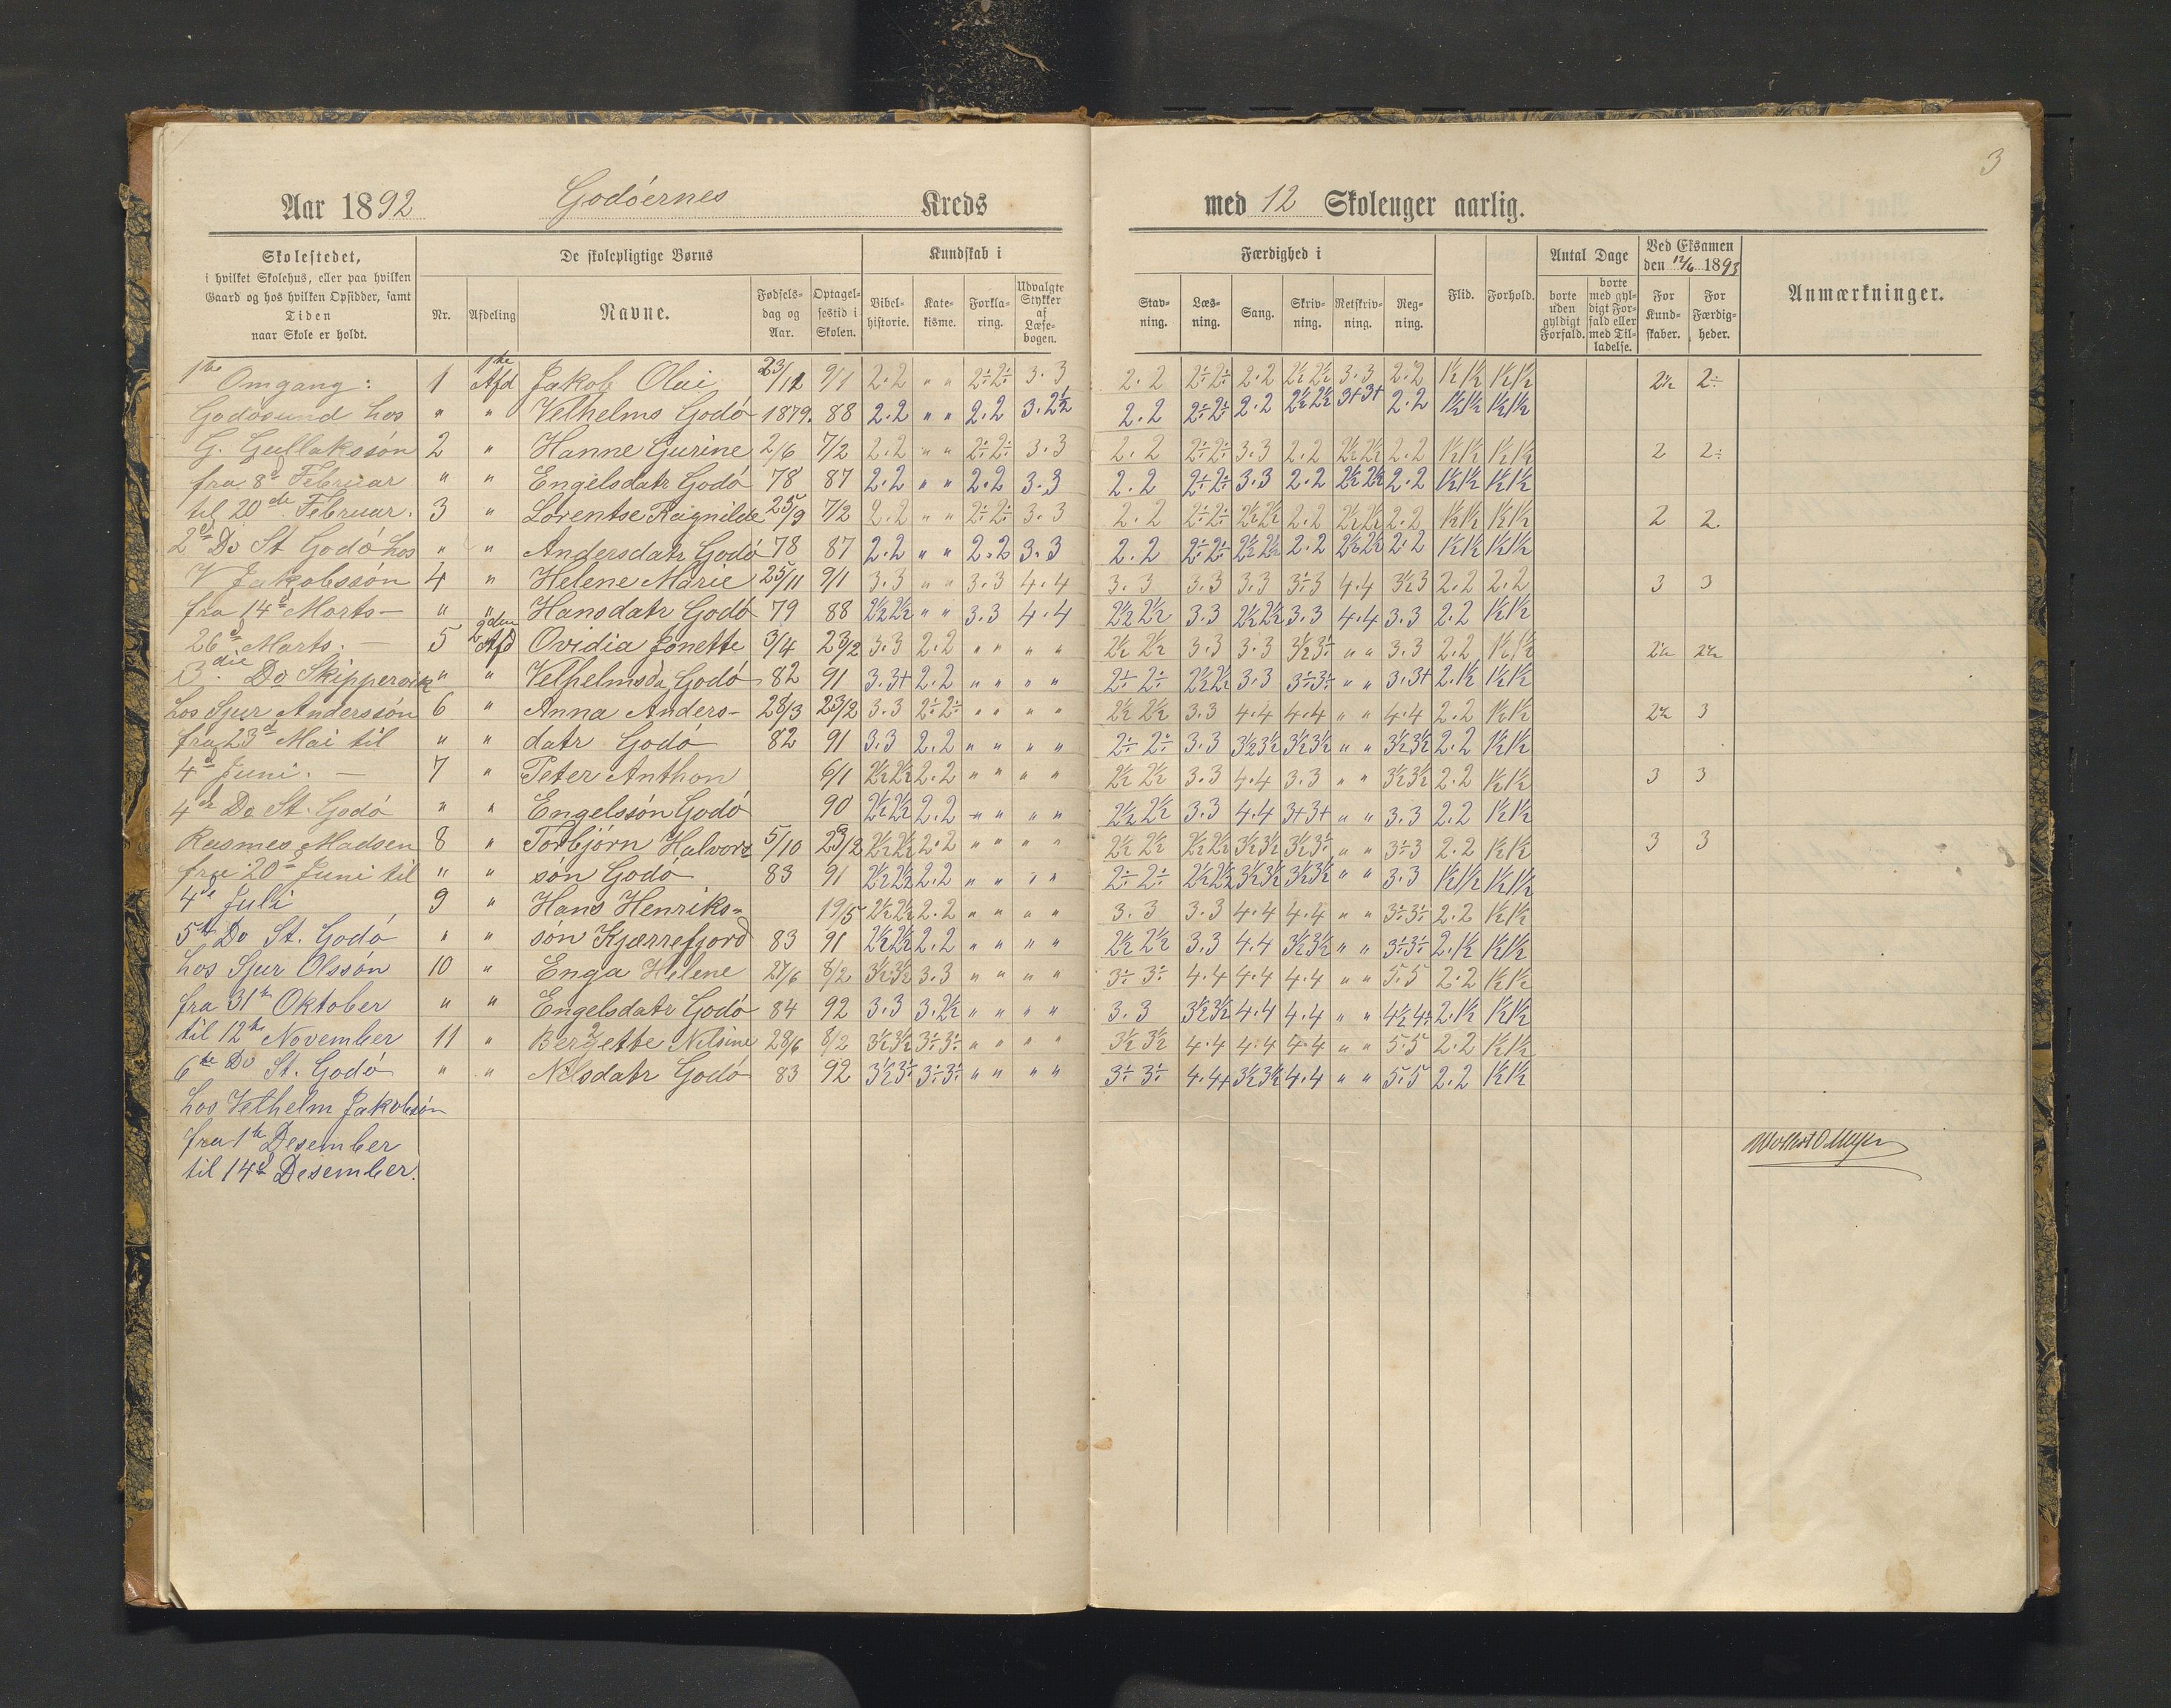 3
Aar 1892 Godöernes Kreds med 12 Skoleuger aarlig.
Skolestedet, i hvilket Skolehus, eller paa hvilken Gaard og hos hvilken Opsidder, samt Tiden naar Skole er holdt.
De skolepligtige Børns
Nr. Afdeling Navne. Fødselsdag og Aar. Optagelsestid i Skolen.
Kundskab i
Bibelhistorie. Katekisme. Forklaring. Udvalgte Stykker af Læsebogen.
Færdighed i
Stavning. Læsning. Sang. Skrivning. Retskrivning. Regning.
Flid. Forhold.
Antal Dage
borte uden gyldigt Forfald. borte med gyldigt Forfald eller med Tilladelse.
Ved Eksamen den 12/6 1893
For Kundskaber. For Færdigheder.
Anmærkninger.
1ste Omgang: 1 1ste Afd Jakob Olai 23/12 9/1 2.2 " " 2÷2÷ 3.3 2.2 2÷2÷ 2.2 2½2½ 3.3 2.2 1½1½ 1½1½ 2½ 2÷
Godösund hos " " Velhelms Godö 1879. 88 2.2 " " 2.2 3.2½ 2.2 2÷2÷ 2.2 2½2½ 3+3+ 2.2 1½1½ 1½1½
G. Gullakssön 2 " Hanne Gurine 2/6 7/2 2.2 " " 2÷2÷ 3.3 2.2 2÷2÷ 3.3 2.2 2½2½ 2.2 1½1½ 1½1½ 2 2÷
fra 8de Februar " " Engelsdatr Godö 78 87 2.2 " " 2.2 3.3 2.2 2÷2÷ 3.3 2.2 2½2½ 2.2 1½1½ 1½1½
til 20de Februar. 3 " Lorentse Ragnilde 25/9 7/2 2.2 " " 2÷2÷ 3.3 2.2 2÷2÷ 2½2½ 2.2 2½2½ 2.2 1½1½ 1½1½ 2 2.
2den Do St Godö hos " " Andersdatr Godö 78 87 2.2 " " 2.2 3.3 2.2 2÷2÷ 2½2½ 2.2 2½2½ 2.2 1½1½ 1½1½
V Jakobssön 4 " Helene Marie 25/11 9/1 3.3 " " 3.3 4.4 3.3 3.3 3.3 3÷3 4.4 3½3 2.2 2.2 3 3
fra 14de Marts – " " Hansdatr Godö 79 88 2½2½ " " 3.3 4.4 2½2½ 3.3 2½2½ 3.3 4.4 3.3 2.2 1½1½
26de Marts. – 5 2den Afd Ovidia Jonette 3/4 23/2 3.3 2.2 " " " " 2½2½ 3.3 3.3 3½3÷ " " 3.3 2.2 1½1½ 2½ 2½
3die Do Skippervik " " Velhelmsda Godö 82 91 3.3+ 2.2 " " " " 2÷2÷ 2½2½ 3.3 3÷3÷ " " 3.3+ 2.1½ 1½1½
hos Sjur Anderssön 6 " Anna Anders- 28/3 23/2 3.3 2÷2÷ " " " " 2½2½ 3.3 4.4 4.4 " " 4.4 2.2 1½1½ 2½ 3
fra 23de Mai til " " datr Godö 82 91 3.3 2.2 " " " " 2÷2÷ 3.3 3½3½ 3½3½ " " 3½3½ 2.2 1½1½
4de Juni. – 7 " Peter Anthon 6/1 2½2½ 2.2 " " " " 2½2½ 3.3 4.4 3.3 " " 3½3½ 2.2 1½1½ 3 3
4de Do St. Godö " " Engelssön Godö 90 2½2½ 2.2 " " " " 2½2½ 3.3 4.4 3+3+ " " 3.3 2.2 1½1½
Rasmes Madsen 8 " Torbjörn Halvors 5/10 23/2 2½2½ 2.2 " " " " 2½2½ 2½2½ 3½3½ 3½3÷ " " 3÷3 2.2 1½1½ 3 3
fra 20de Juni til " " sön Godö 83 91 2½2½ 2.2 " " " " 2÷2÷ 2½2½ 3½3½ 3½3½ " " 3.3 1½1½ 1½1½
4de Juli 9 " Hans Henriks- 19/5 2½2½ 2.2 " " " " 3.3 3.3 4.4 4.4 " " 3÷3÷ 2.2 1½1½
5te Do St. Godö " " sön Kjærrefjord 83 91 2½2½ 2.2 " " " " 2½2½ 3.3 4.4 3½3½ " " 3÷3÷ 2.1½ 1½1½
hos Sjur Olssön 10 " Enga Helene 27/6 8/2 3½3½ 3.3 " " " " 3÷3÷ 4.4 4.4 4.4 " " 5.5 2.2 1½1½
fra 31te Oktober " " Engelsdatr Godö 84 92 3.3 3.2½ " " " " 3.3 3½3½ 4.4 4.4 " " 4½4÷ 2.1½ 1½1½
til 12te November 11 " Bergette Nilsine 28/6 8/2 3½3½ 3÷3÷ " " " " 3½3½ 4.4 4.4 4.4 " " 5.5 2.2 1½1½
6te Do St. Godö " " Nilsdatr Godö 83 92 3½3÷ 3÷3÷ " " " " 3÷3÷ 4.4+ 3½3½ 4.4 " " 5.5 2.2 1½1½
hos Velhelm Jakobsön
fra 1te Desember
til 14de Desember.